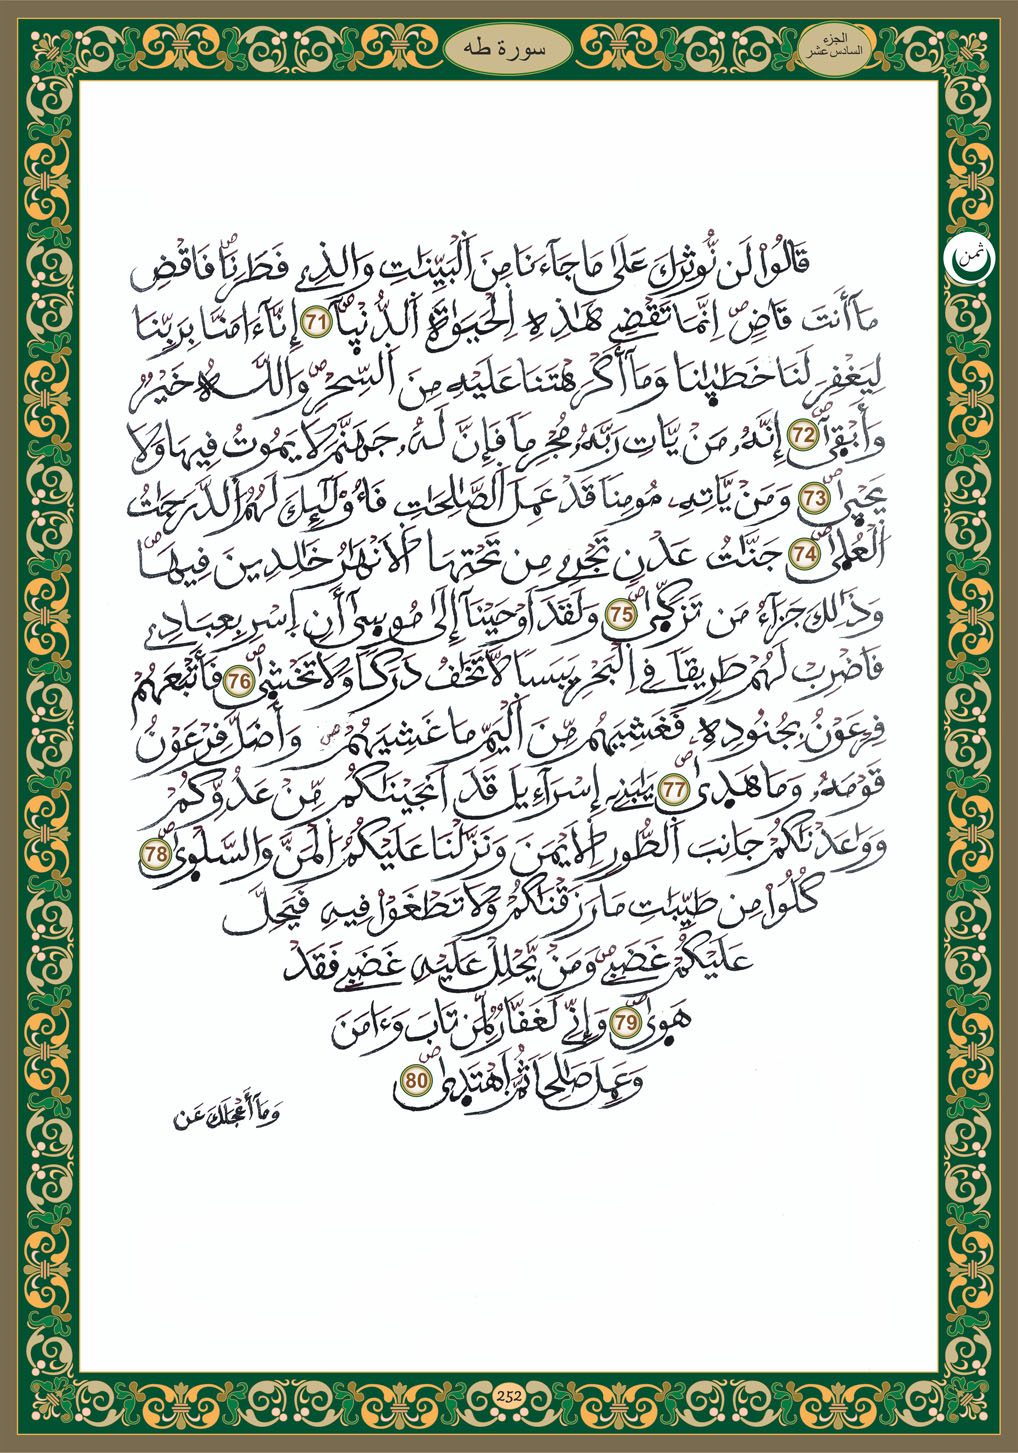 سورة طه
الجزء
السادس عشر
ثمن
قَالُواْ لَن نُّوثِرَكَ عَلَىٰ مَا جَآءَنَا مِنَ اَ۬لْبَيِّنَٰتِ وَالذِے فَطَرَنَا فَاقْضِ
مَآ أَنتَ قَاضٍ اِنَّمَا تَقْضِے هَٰذِهِ اِ۬لْحَيَوٰةَ اَ۬لدُّنْيَآ 71 إِنَّآ ءَامَنَّا بِرَبِّنَا
لِيَغْفِرَ لَنَا خَطَٰيَٰنَا وَمَآ أَكْرَهْتَنَا عَلَيْهِ مِنَ اَ۬لسِّحْرِ وَاللَّهُ خَيْرٌ
وَأَبْقَىٰٓ 72 إِنَّهُۥ مَنْ يَّاتِ رَبَّهُۥ مُجْرِماٗ فَإِنَّ لَهُۥ جَهَنَّمَ لَا يَمُوتُ فِيهَا وَلَا
يَحْيَىٰ 73 وَمَنْ يَّأْتِهِۦ مُومِناٗ قَدْ عَمِلَ اَ۬لصَّٰلِحَٰتِ فَأُوْلَٰٓئِكَ لَهُمُ اُ۬لدَّرَجَٰتُ
اُ۬لْعُلَىٰ 74 جَنَّٰتُ عَدْنٖ تَجْرِے مِن تَحْتِهَا اَ۬لَانْهَٰرُ خَٰلِدِينَ فِيهَا
وَذَٰلِكَ جَزَآءُ مَن تَزَكَّىٰ 75 وَلَقَدَ اَوْحَيْنَآ إِلَىٰ مُوسَىٰٓ أَنِ اِ۪سْرِ بِعِبَادِے
فَاضْرِبْ لَهُمْ طَرِيقاٗ فِے اِ۬لْبَحْرِ يَبَساٗ لَّا تَخَٰفُ دَرَكاٗ وَلَا تَخْشَىٰ 76 فَأَتْبَعَهُمْ
فِرْعَوْنُ بِجُنُودِهِۦ فَغَشِيَهُم مِّنَ اَ۬لْيَمِّ مَا غَشِيَهُمْ وَأَضَلَّ فِرْعَوْنُ
قَوْمَهُۥ وَمَا هَدَىٰ 77 يَٰبَنِےٓ إِسْرَآءِيلَ قَدَ اَنجَيْنَٰكُم مِّنْ عَدُوِّكُمْ
وَوَٰعَدْنَٰكُمْ جَانِبَ اَ۬لطُّورِ اِ۬لَايْمَنَ وَنَزَّلْنَا عَلَيْكُمُ اُ۬لْمَنَّ وَالسَّلْوَىٰ 78
كُلُواْ مِن طَيِّبَٰتِ مَا رَزَقْنَٰكُمْ وَلَا تَطْغَوْاْ فِيهِ فَيَحِلَّ
عَلَيْكُمْ غَضَبِے وَمَنْ يَّحْلِلْ عَلَيْهِ غَضَبِے فَقَدْ
هَوَىٰ 79 وَإِنِّے لَغَفَّارٞ لِّمَن تَابَ وَءَامَنَ
وَعَمِلَ صَٰلِحاٗ ثُمَّ اَ۪هْتَدَىٰ 80
وَمَآ أَعْجَلَكَ عَن
252